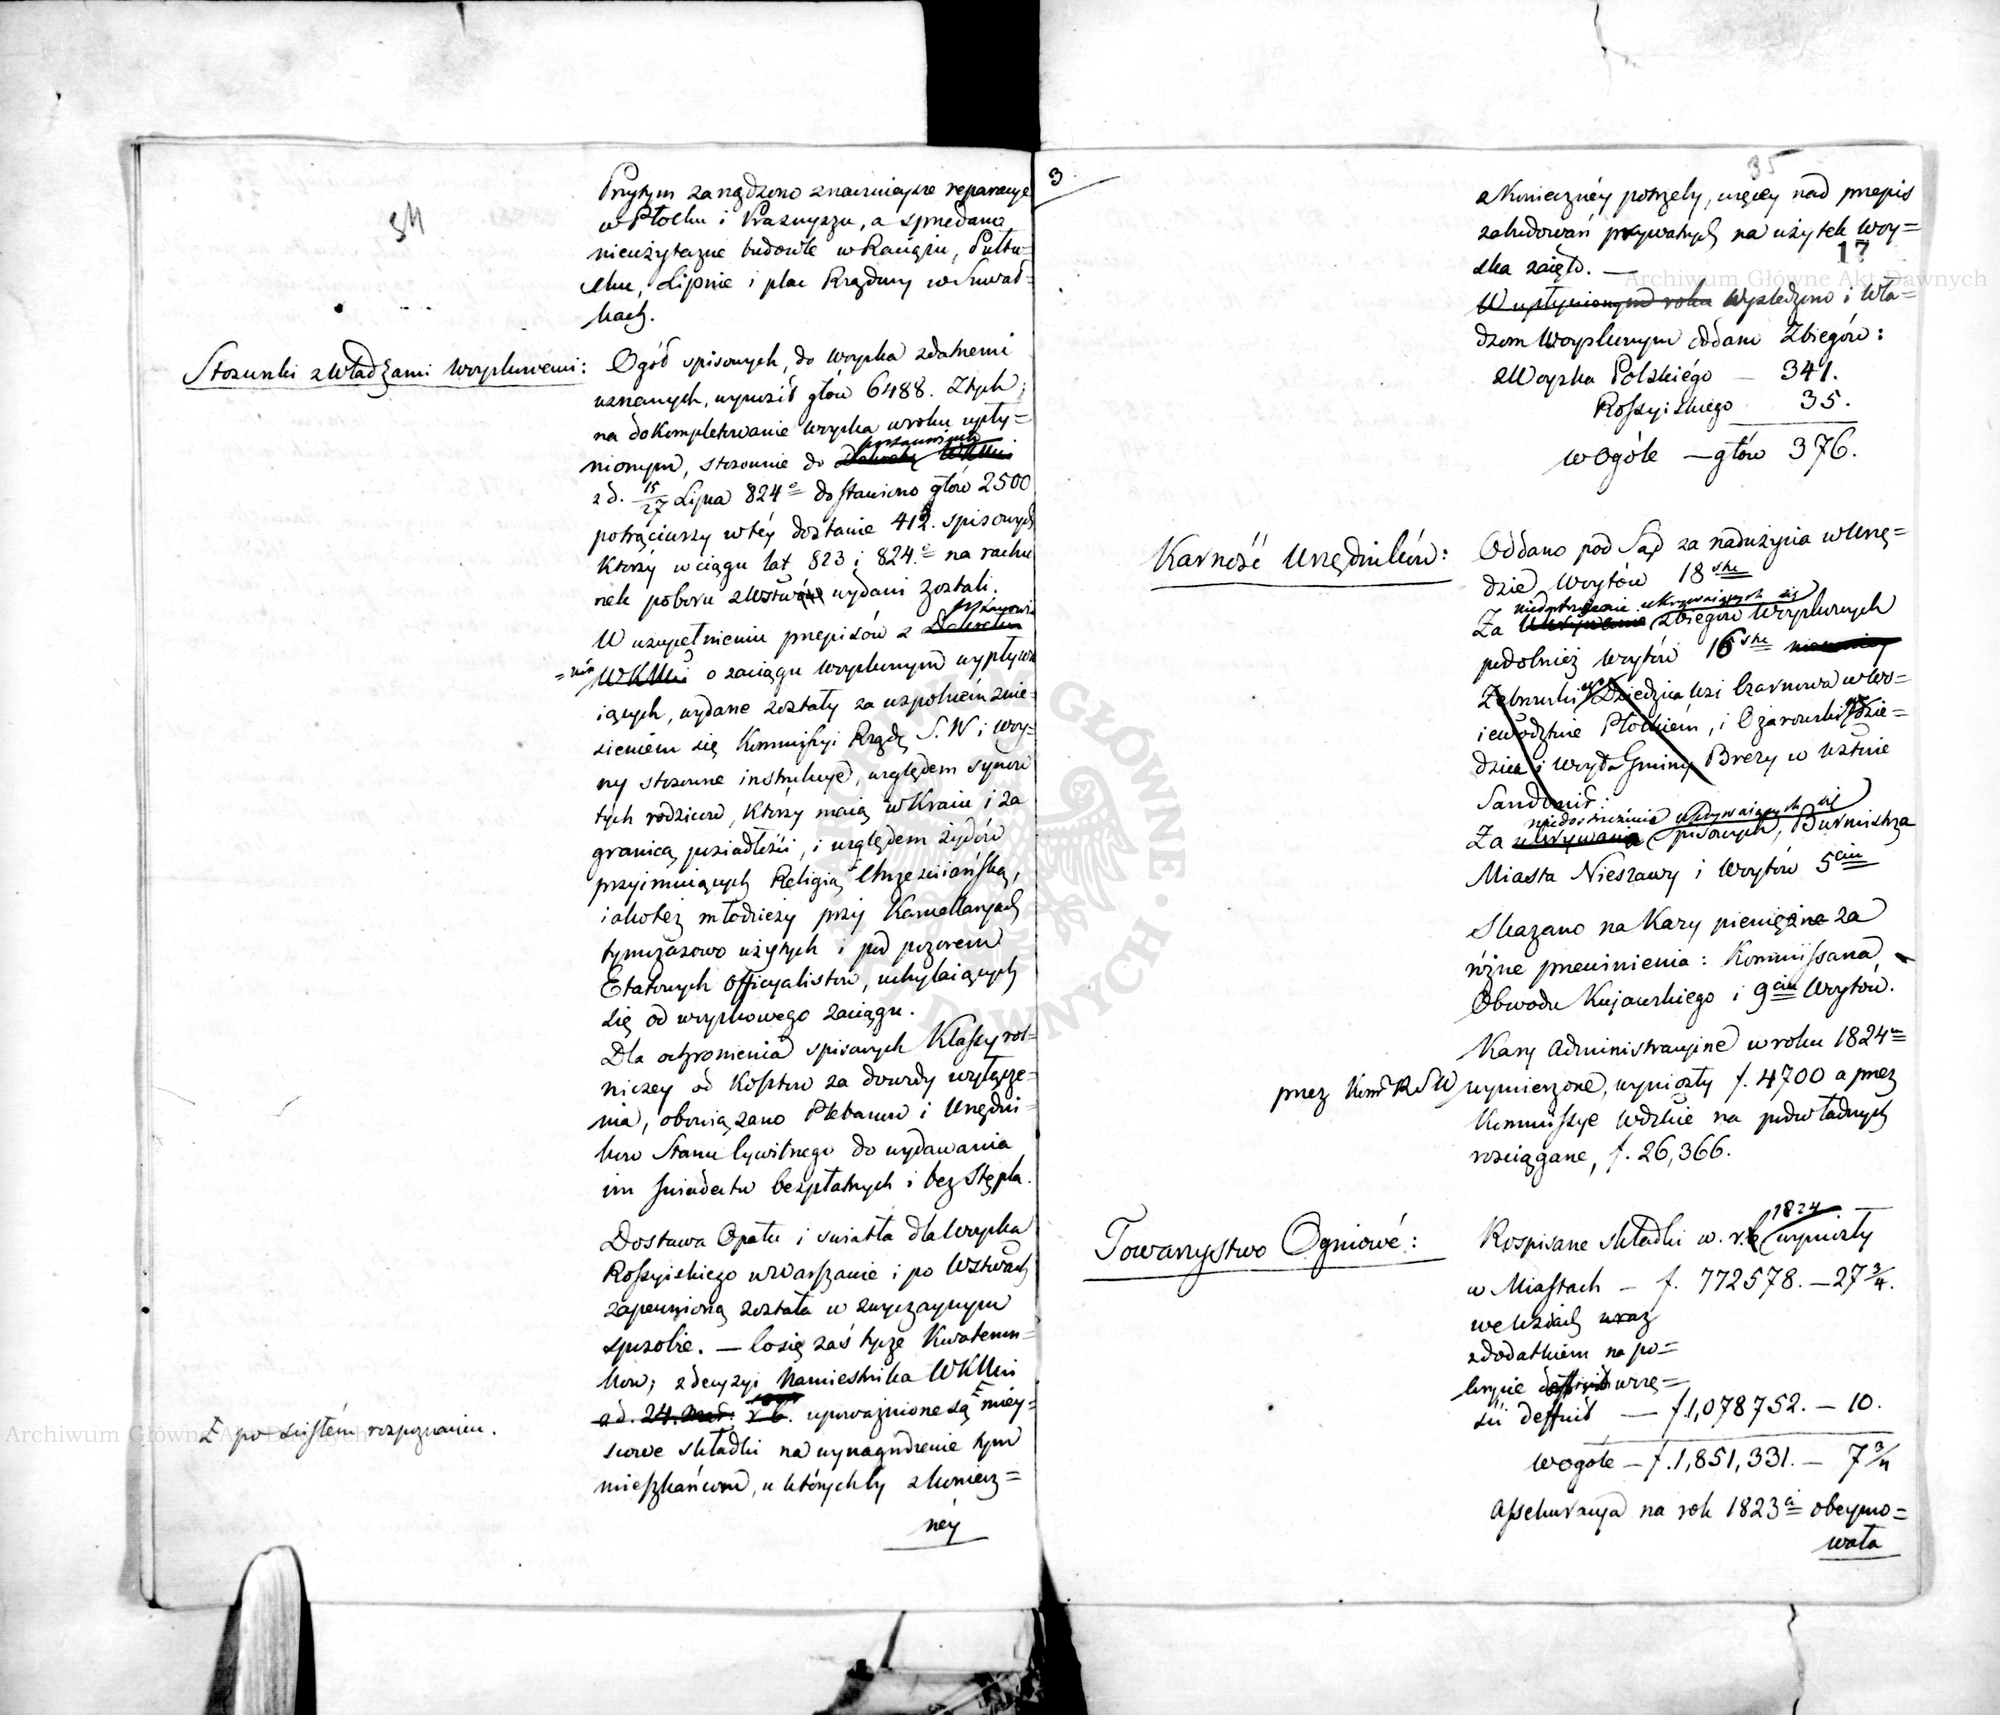 34
Przytym zarządzono znacznieysze reparacye
w Płocku i Prasnyszu, a sprzedano
nieużyteczne budowle w Raciążu, Pułtu=
sku, Lipnie i plac Rządowy w Suwał=
kach.
Stosunki z Władzami Woyskowemi:
Ogół spisowych, do woyska zdatnemi
uznanych, wynosił głów 6488. Z tych;
na dokompletowanie woyska w roku upły=
nionym, stosownie do
z d. 15/27 Lipca 824º dostawiono głów 2500
potrąciwszy w téy dostawie 412. spisowych
którzy w ciągu lat 823 i 824.º na rachu
nek poboru z Wstw wydani zostali.
W uzupełnieniu przepisów z Postanowie
=nia WKMci o zaciągu woyskowym wypływa
iących, wydane zostały za wspólném znie=
sieniem się Kommissyi Rządę S. W i Woy=
ny stosowne instrukcye, względem synów
tych rodziców, którzy maią w Kraiu i za
granicą posiadłości, i względem żydów
przyimuiących Religią Chrześciańską,
iakoteż młodzieży przy Kancellaryach
tymczasowo użytych i pod pozorem
Etatowych officyalistów, uchylaiących
się od woyskowego zaciągu.
Dla ochronienia spisowych Klassy rol=
niczey od kosztów za dowody wyłącze=
nia, obowiązano Plebanów i Urzędni=
ków Stanu Cywilnego do wydawania
im świadectw bezpłatnych i bez Stępla.
Dostawa Opału i swiatła dla Woyska
Rossyiskiego w Warszawie i po Wztwach
zapewnioną została w zwyczaynym
sposobie. — Co się zaś tycze Kwaterun=
kow; z decyzyi Namiestnika WKMci
z d. 24. r. b. upoważnione są miey=
scowe składki na wynagrodzenie tym
mieszkańcom, u którychby z koniecz=
néy
po scisłém rozpoznaniu.
3
35
17
z Konieczney potrzeby, więcéy nad przepis
zabudowań prywatnych na użytek Woy=
ska zaięto. —
W upłynionym roku Wysledzono i Wła=
dzom Woyskowym oddano Zbiegów:
z Woyska Polskiégo — 341.
Rossyiskiego 35.
w Ogóle — głów 376.
Karność Urzędników:
Oddano pod Sąd za nadużycia w Urzę=
dzie Woytów 18stu
niedostrzeżenie ukrywaiących się
Za ukrywanie zbiegów Woyskowych
podobnież Woytów 16stu
Zebrowski Dziedzica Wsi Czarnowa w Wo=
iewództwie Płockiém, i Ożarowski dzie=
dzica i Woyta Gminy Brezy w Wztwie
Sandomir:
niedostrzeżenia ukrywaiących się
Za ukrywania spisowych, Burmistrza
Miasta Nieszawy i Woytów 5ciu
Skazano na Kary pieniężne za
różne przewinienia: Kommissarza
Obwodu Kujawskiego i 9ciu Woytów.
Kary administracyine w roku 1824m
przez Kom R S W wymierzone, wyniosły f. 4700 a przez
Kommissye Wdzkie na podwładnych
rozciągane, f. 26,366.
Towarzystwo Ogniowé:
1824
Rospisane składki w. r. b wyniosły
w Miastach — f. 772578. — 27 3/4.
we Wsiach wraz
z dodatkiem na po=
krycie w czę=
ści defficit — f. 1,078752. — 10.
wogóle — f. 1,851,331. — 7 3/4
Assekuracya na rok 1823ci obeymo=
wała
Archiwum Główne Akt Dawnych
Archiwum Główne Akt Dawnych